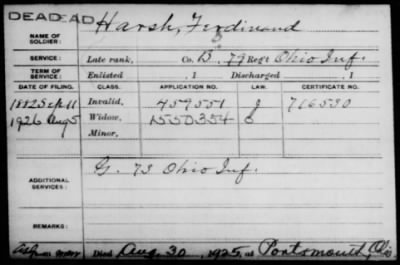 DEAD DEAD Harsh, Ferdinand
NAME OF
SOLDIER:
SERVICE: Late rank, Co. B, 79 Reg't Ohio Inf.
TERM OF
SERVICE: Enlisted , 1 Discharged , 1
DATE OF FILING. CLASS. APPLICATION NO. LAW. CERTIFICATE NO.
1882 Sept 11 Invalid, 459551 J 716530
1926 Aug 5 Widow, 1550354
Minor,
ADDITIONAL
SERVICES: G. 73 Ohio Inf.
REMARKS:
Died Aug. 30, 1925, at Portsmouth, Ohio